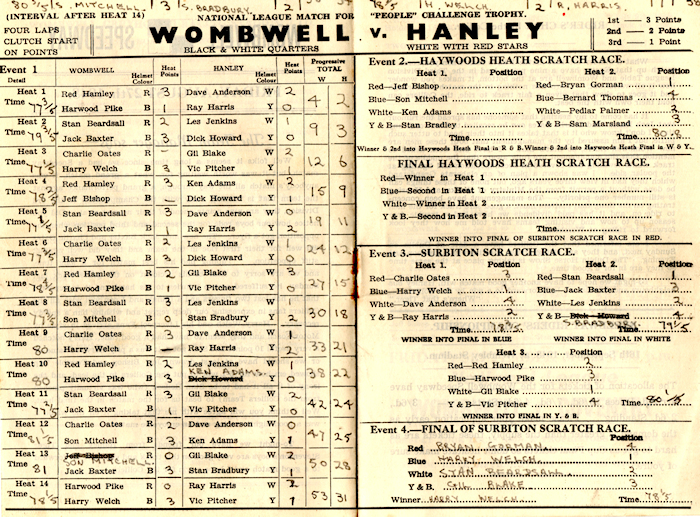 80 3/5 S. MITCHELL. 1 3/S. BRADBURY. 1/2
78 1/5 H. WELCH. 2/1 R. HARRIS.
(INTERVAL AFTER HEAT 14)
NATIONAL LEAGUE MATCH FOR "PEOPLE" CHALLENGE TROPHY.
FOUR LAPS
CLUTCH START
ON POINTS
WOMBWELL v. HANLEY
BLACK & WHITE QUARTERS
WHITE WITH RED STARS
1st — 3 Points
2nd — 2 Points
3rd — 1 Point
Event 1 WOMBWELL Helmet Colour Heat Points HANLEY Helmet Colour Heat Points Progressive TOTAL
Detail W H
Heat 1 Red Hamley R 3 Dave Anderson W 2
Time 77 3/5 Harwood Pike B 1 Ray Harris Y 0 4 2
Heat 2 Stan Beardsall R 2 Les Jenkins W 1
Time 79 3/5 Jack Baxter B 3 Dick Howard Y 0 9 3
Heat 3 Charlie Oates R – Gil Blake W 2
Time 77 1/5 Harry Welch B 3 Vic Pitcher Y 1 12 6
Heat 4 Red Hamley R 3 Ken Adams W 2
Time 78 2/5 Jeff Bishop B – Dick Howard Y 1 15 9
Heat 5 Stan Beardsall R 3 Dave Anderson W 0
Time 77 4/5 Jack Baxter B 1 Ray Harris Y 2 19 11
Heat 6 Charlie Oates R 2 Les Jenkins W 1
Time 77 3/5 Harry Welch B 3 Dick Howard Y 0 24 12
Heat 7 Red Hamley R 2 Gil Blake W 3
Time 78 3/5 Harwood Pike B 1 Vic Pitcher Y 0 27 15
Heat 8 Stan Beardsall R 3 Les Jenkins W 1
Time 77 3/5 Son Mitchell B 0 Stan Bradbury Y 2 30 18
Heat 9 Charlie Oates R 3 Dave Anderson W 1
Time 80 Harry Welch B – Ray Harris Y 2 33 21
Heat 10 Red Hamley R 2 Les Jenkins W 1
KEN ADAMS.
Time 80 Harwood Pike B 3 Dick Howard Y 0 38 22
Heat 11 Stan Beardsall R 3 Gil Blake W 2
Time 77 2/5 Jack Baxter B 1 Vic Pitcher Y 0 42 24
Heat 12 Charlie Oates R 2 Dave Anderson W 0
Time 81 1/5 Son Mitchell B 3 Ken Adams Y 1 47 25
Heat 13 Jeff Bishop R 0 Gil Blake W 2
SON MITCHELL.
Time 81 Jack Baxter B 3 Stan Bradbury Y 1 50 28
Heat 14 Harwood Pike R 0 Ray Harris W 2
Time 78 1/5 Harry Welch B 3 Vic Pitcher Y 1 53 31
Event 2.—HAYWOODS HEATH SCRATCH RACE.
Heat 1. Position Heat 2. Position
Red—Jeff Bishop Red—Bryan Gorman 1
Blue—Son Mitchell Blue—Bernard Thomas 4
White—Ken Adams White—Pedlar Palmer 2
Y & B—Stan Bradley Y & B—Sam Marsland 3
Time 80-8
Winner & 2nd into Haywoods Heath Final in R & B. Winner & 2nd into Haywoods Heath Final in W & Y.
FINAL HAYWOODS HEATH SCRATCH RACE.
Red—Winner in Heat 1
Blue—Second in Heat 1
White—Winner in Heat 2
Y & B.—Second in Heat 2
Time
WINNER INTO FINAL OF SURBITON SCRATCH RACE IN RED.
Event 3.—SURBITON SCRATCH RACE.
Heat 1. Position Heat 2. Position
Red—Charlie Oates 3 Red—Stan Beardsall 1
Blue—Harry Welch 1 Blue—Jack Baxter 3
White—Dave Anderson 4 White—Les Jenkins 2
Y & B—Ray Harris 2 Y & B—Dick Howard 4
S. BRADBURY.
Time 78 3/5 Time 79 1/5
WINNER INTO FINAL IN BLUE WINNER INTO FINAL IN WHITE
Heat 3. ... ... ... Position
Red—Red Hamley 2
Blue—Harwood Pike 3
White—Gil Blake 1
Y & B—Vic Pitcher 4 Time 80 1/5
WINNER INTO FINAL IN Y. & B.
Event 4.—FINAL OF SURBITON SCRATCH RACE.
Red BRYAN GORMAN. 4
Blue HARRY WELCH 1
White STAN BEARDSALL. 2
Y & B. GIL BLAKE 3
Winner HARRY WELCH Time 78 1/5